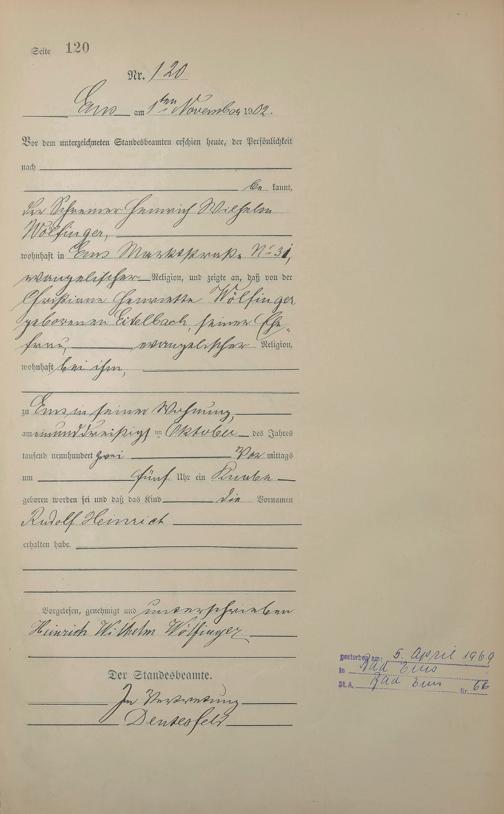 Seite 120
Nr. 120
Ems am 1ten November 1902.
Vor dem unterzeichneten Standesbeamten erschien heute, der Persönlichkeit
nach
be kannt,
der Schreiner Heinrich Wilhelm
Wölfinger,
wohnhaft in Ems Marktstraße No 31,
evangelischer Religion, und zeigte an, daß von der
Christiane Henriette Wölfinger
geborenen Eitelbach, seiner Ehe-
frau, evangelischer Religion,
wohnhaft bei ihm,
zu Ems in seiner Wohnung,
am einunddreißigsten Oktober des Jahres
tausend neunhundert zwei Vor mittags
um fünf Uhr ein Knabe
geboren worden sei und daß das Kind die Vornamen
Rudolf Heinrich
erhalten habe.
Vorgelesen, genehmigt und unterschrieben
Heinrich Wilhelm Wölfinger
Der Standesbeamte.
In Vertretung
gestorben am: 5. April 1969
in Bad Ems
St.A. Bad Ems Nr. 66